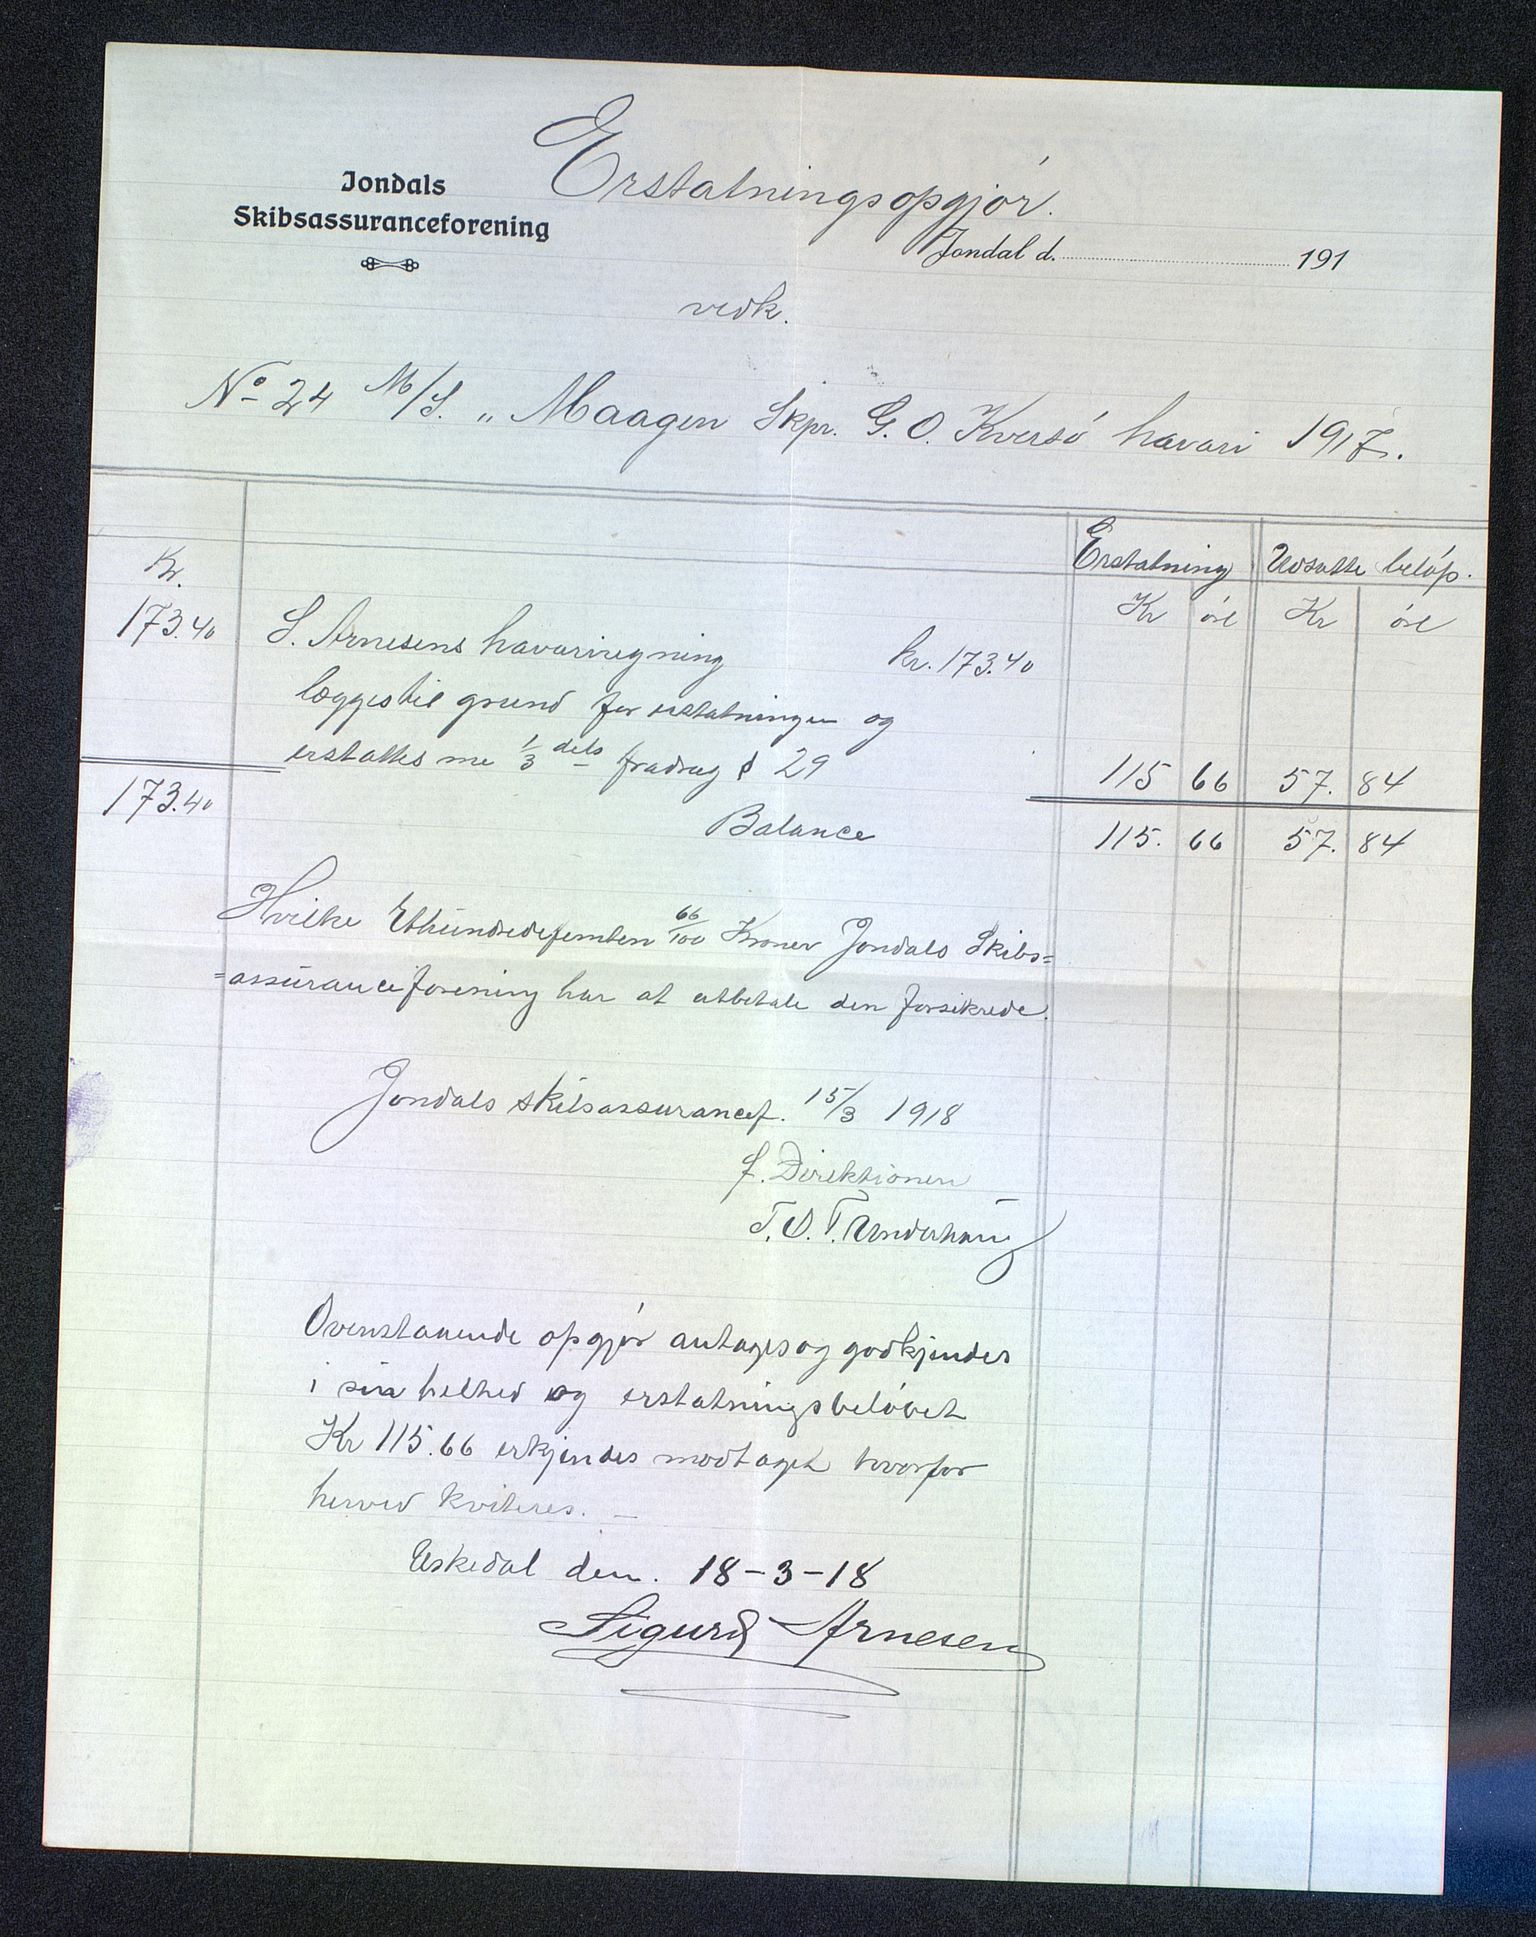 Erstatningsopgjór.
Jondals
Skibsassuranceforening
Jondal d. 191
vedk.
No 24 M/S. „ Maagen Skpr. G. O. Kversó havari 1917.
Erstatning Udsatte belóp.
Kr. Kr óre Kr óre
173.40 S. Arnesens havariregning kr. 173.40
lægges til grund for erstatningen og
erstattes me 1/3 dels fradrag § 29 115 66 57. 84
173.40 Balance 115. 66 57. 84
Hvilke Ethundredefemten 66/100 Kroner Jondals Skibs=
=assuranceforening har at utbetale den forsikrede.
Jondals skibsassurancef. 15/3 1918
f. Direktionen
T. O. T. Underhaug
Ovenstaaende opgjór antages og godkjendes
i sin helhed og erstatningsbelóbet
Kr 115.66 erkjendes modtaget hvorfor
herved kviteres. —
Uskedal den. 18-3-18
Sigurd Arnesen